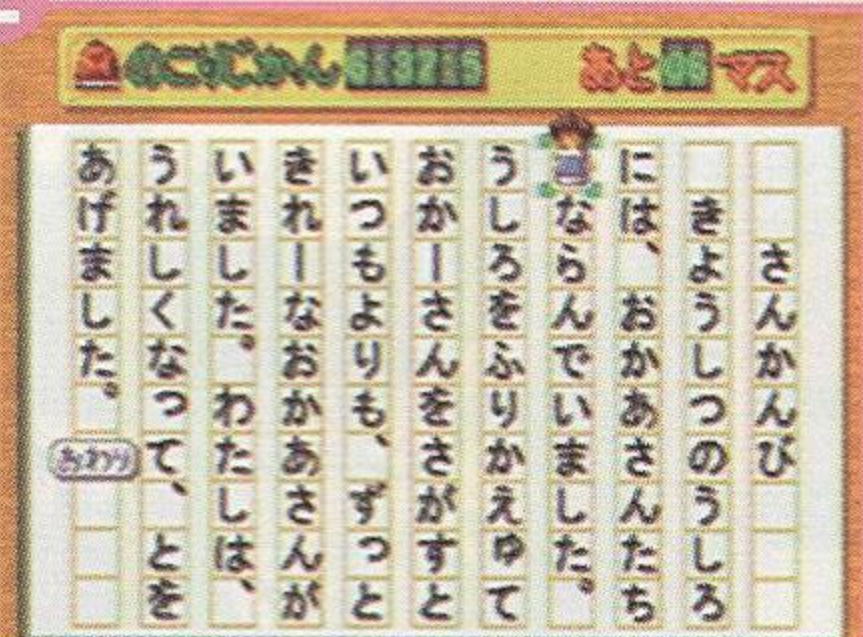 のこりじかん
あと マス
さんかんび
きようしつのうしろ
には、おかあさんたち
ならんでいました。
うしろをふりかえゆて
おかーさんをさがすと
いつもよりも、ずっと
きれーなおかあさんが
いました。わたしは、
うれしくなって、とを
あげました。
おわり